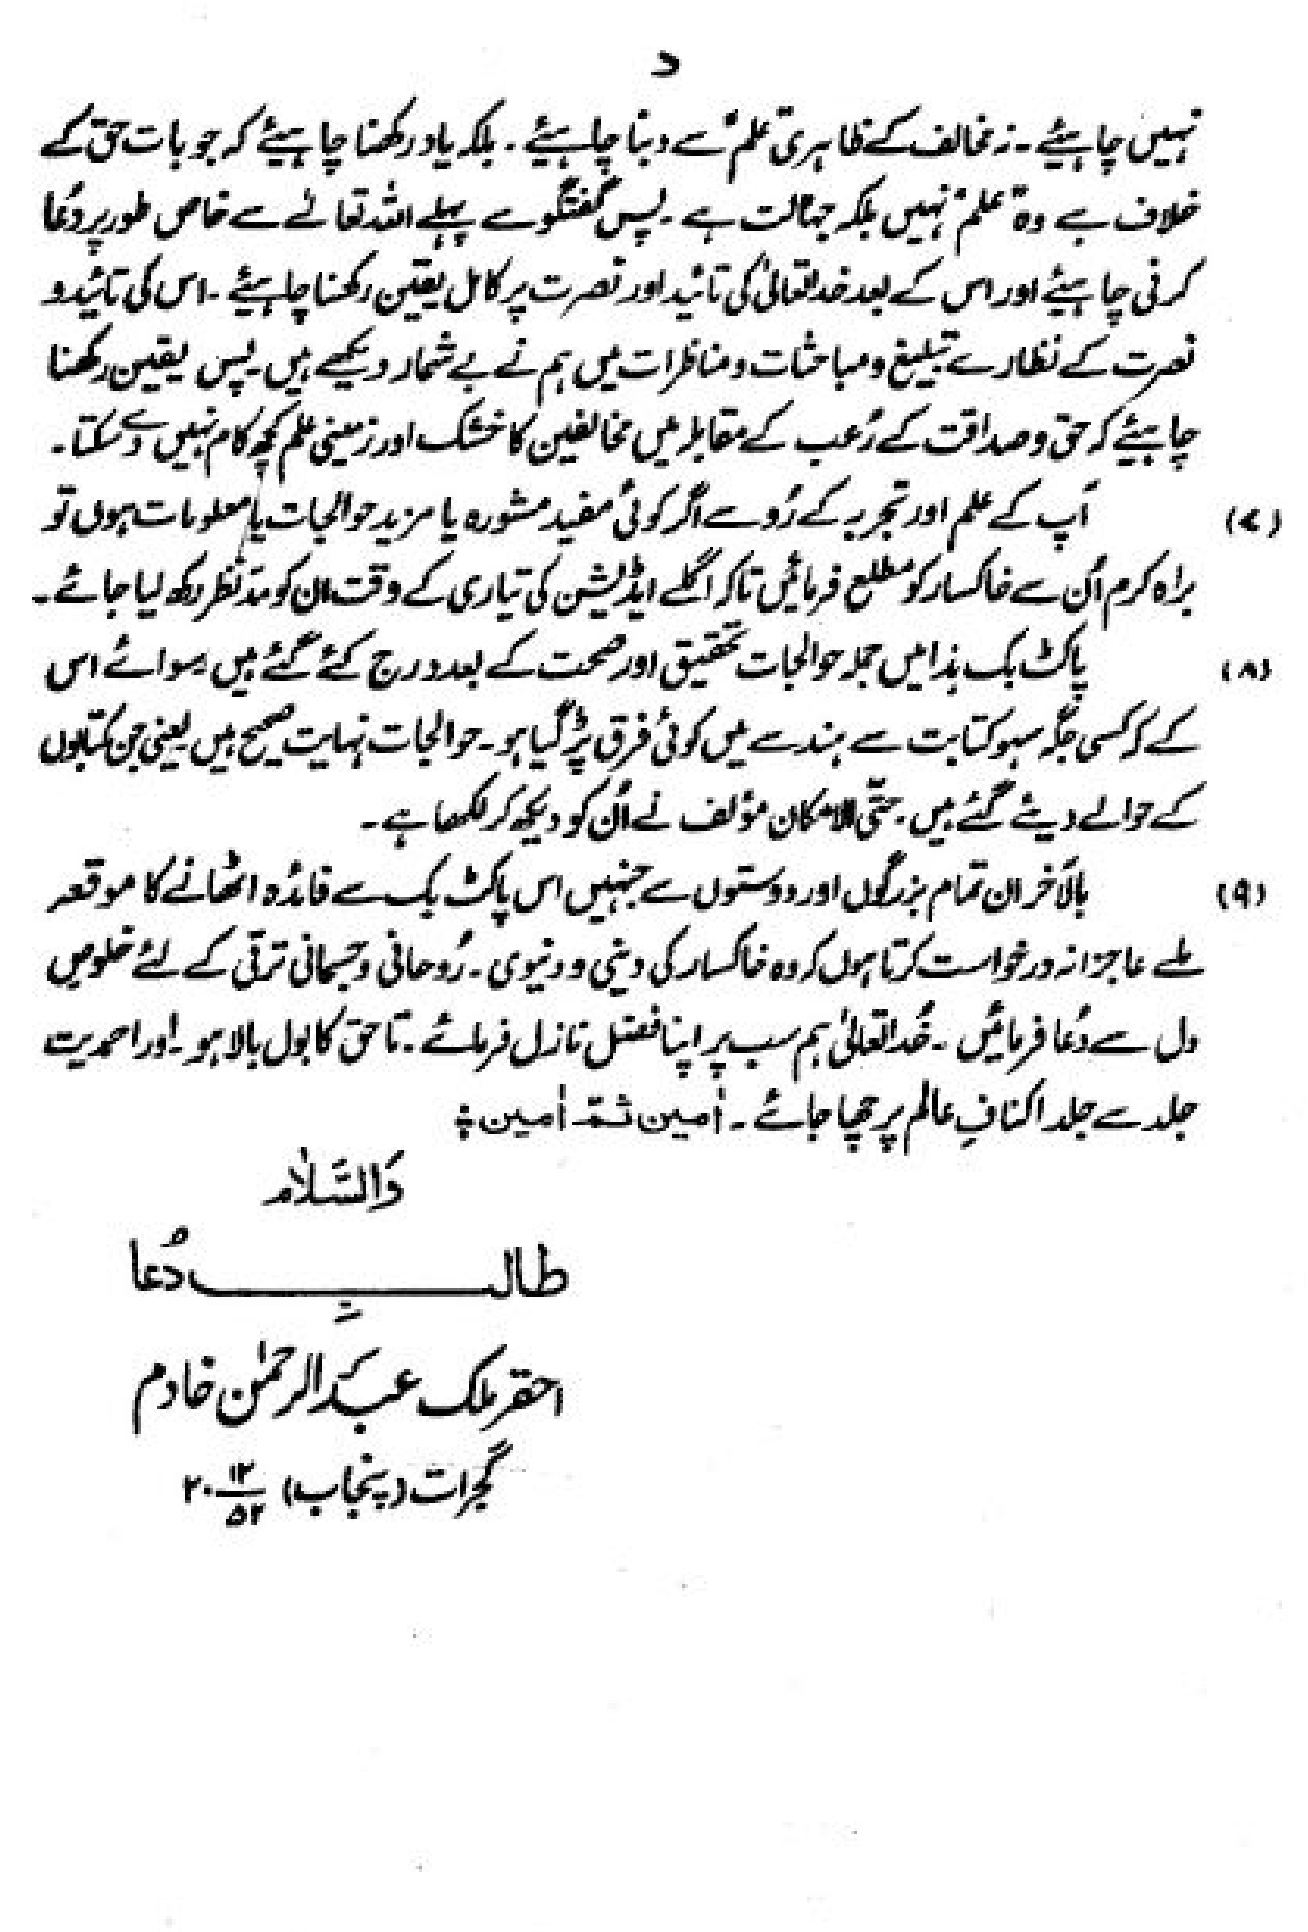 د
نہیں چاہیئے۔ نہ مخالف کے ظاہری "علم" سے دبنا چاہیئے۔ بلکہ یاد رکھنا چاہیئے کہ جو بات حق کے
خلاف ہے وہ "علم" نہیں بلکہ جہالت ہے۔ پس گفتگو سے پہلے اللہ تعالےٰ سے خاص طور پر دُعا
کرنی چاہیئے اور اس کے بعد خدا تعالیٰ کی تائید اور نصرت پر کامل یقین رکھنا چاہیئے۔ اس کی تائید و
نصرت کے نظارے تبلیغ و مباحثات و مناظرات میں ہم نے بے شمار دیکھے ہیں۔ پس یقین رکھنا
چاہیئے کہ حق و صداقت کے رُعب کے مقابلہ میں مخالفین کا خشک اور زمینی علم کچھ کام نہیں دے سکتا۔
(۷) آپ کے علم اور تجربہ کے رُو سے اگر کوئی مفید مشورہ یا مزید حوالجات یا معلومات ہوں تو
براہ کرم اُن سے خاکسار کو مطلع فرمائیں تاکہ اگلے ایڈیشن کی تیاری کے وقت ان کو مدّنظر رکھ لیا جائے۔
(۸) پاکٹ بک ہذا میں جملہ حوالجات تحقیق اور صحت کے بعد درج کئے گئے ہیں۔ سوائے اس
کے کہ کسی جگہ سہو کتابت سے ہندسے میں کوئی فرق پڑ گیا ہو۔ حوالجات نہایت صحیح ہیں یعنی جن کتابوں
کے حوالے دیئے گئے ہیں۔ حتّی الامکان مؤلف نے اُن کو دیکھ کر لکھا ہے۔
(۹) بالآخر ان تمام بزرگوں اور دوستوں سے جنہیں اس پاکٹ بک سے فائدہ اٹھانے کا موقعہ
ملے عاجزانہ درخواست کرتا ہوں کہ وہ خاکسار کی دینی و دنیوی۔ رُوحانی و جسمانی ترقی کے لئے خلوص
دل سے دُعا فرمائیں۔ خُدا تعالیٰ ہم سب پر اپنا فضل نازل فرمائے۔ تا حق کا بول بالا ہو۔ اور احمدیت
جلد سے جلد اکنافِ عالم پر چھا جائے۔ اٰمین ثمّ اٰمین ؞
وَالسَّلَام
طالبِ دُعا
احقر ملک عبدالرحمٰن خادم
گجرات (پنجاب) ۲۰ ۱۲/۵۲